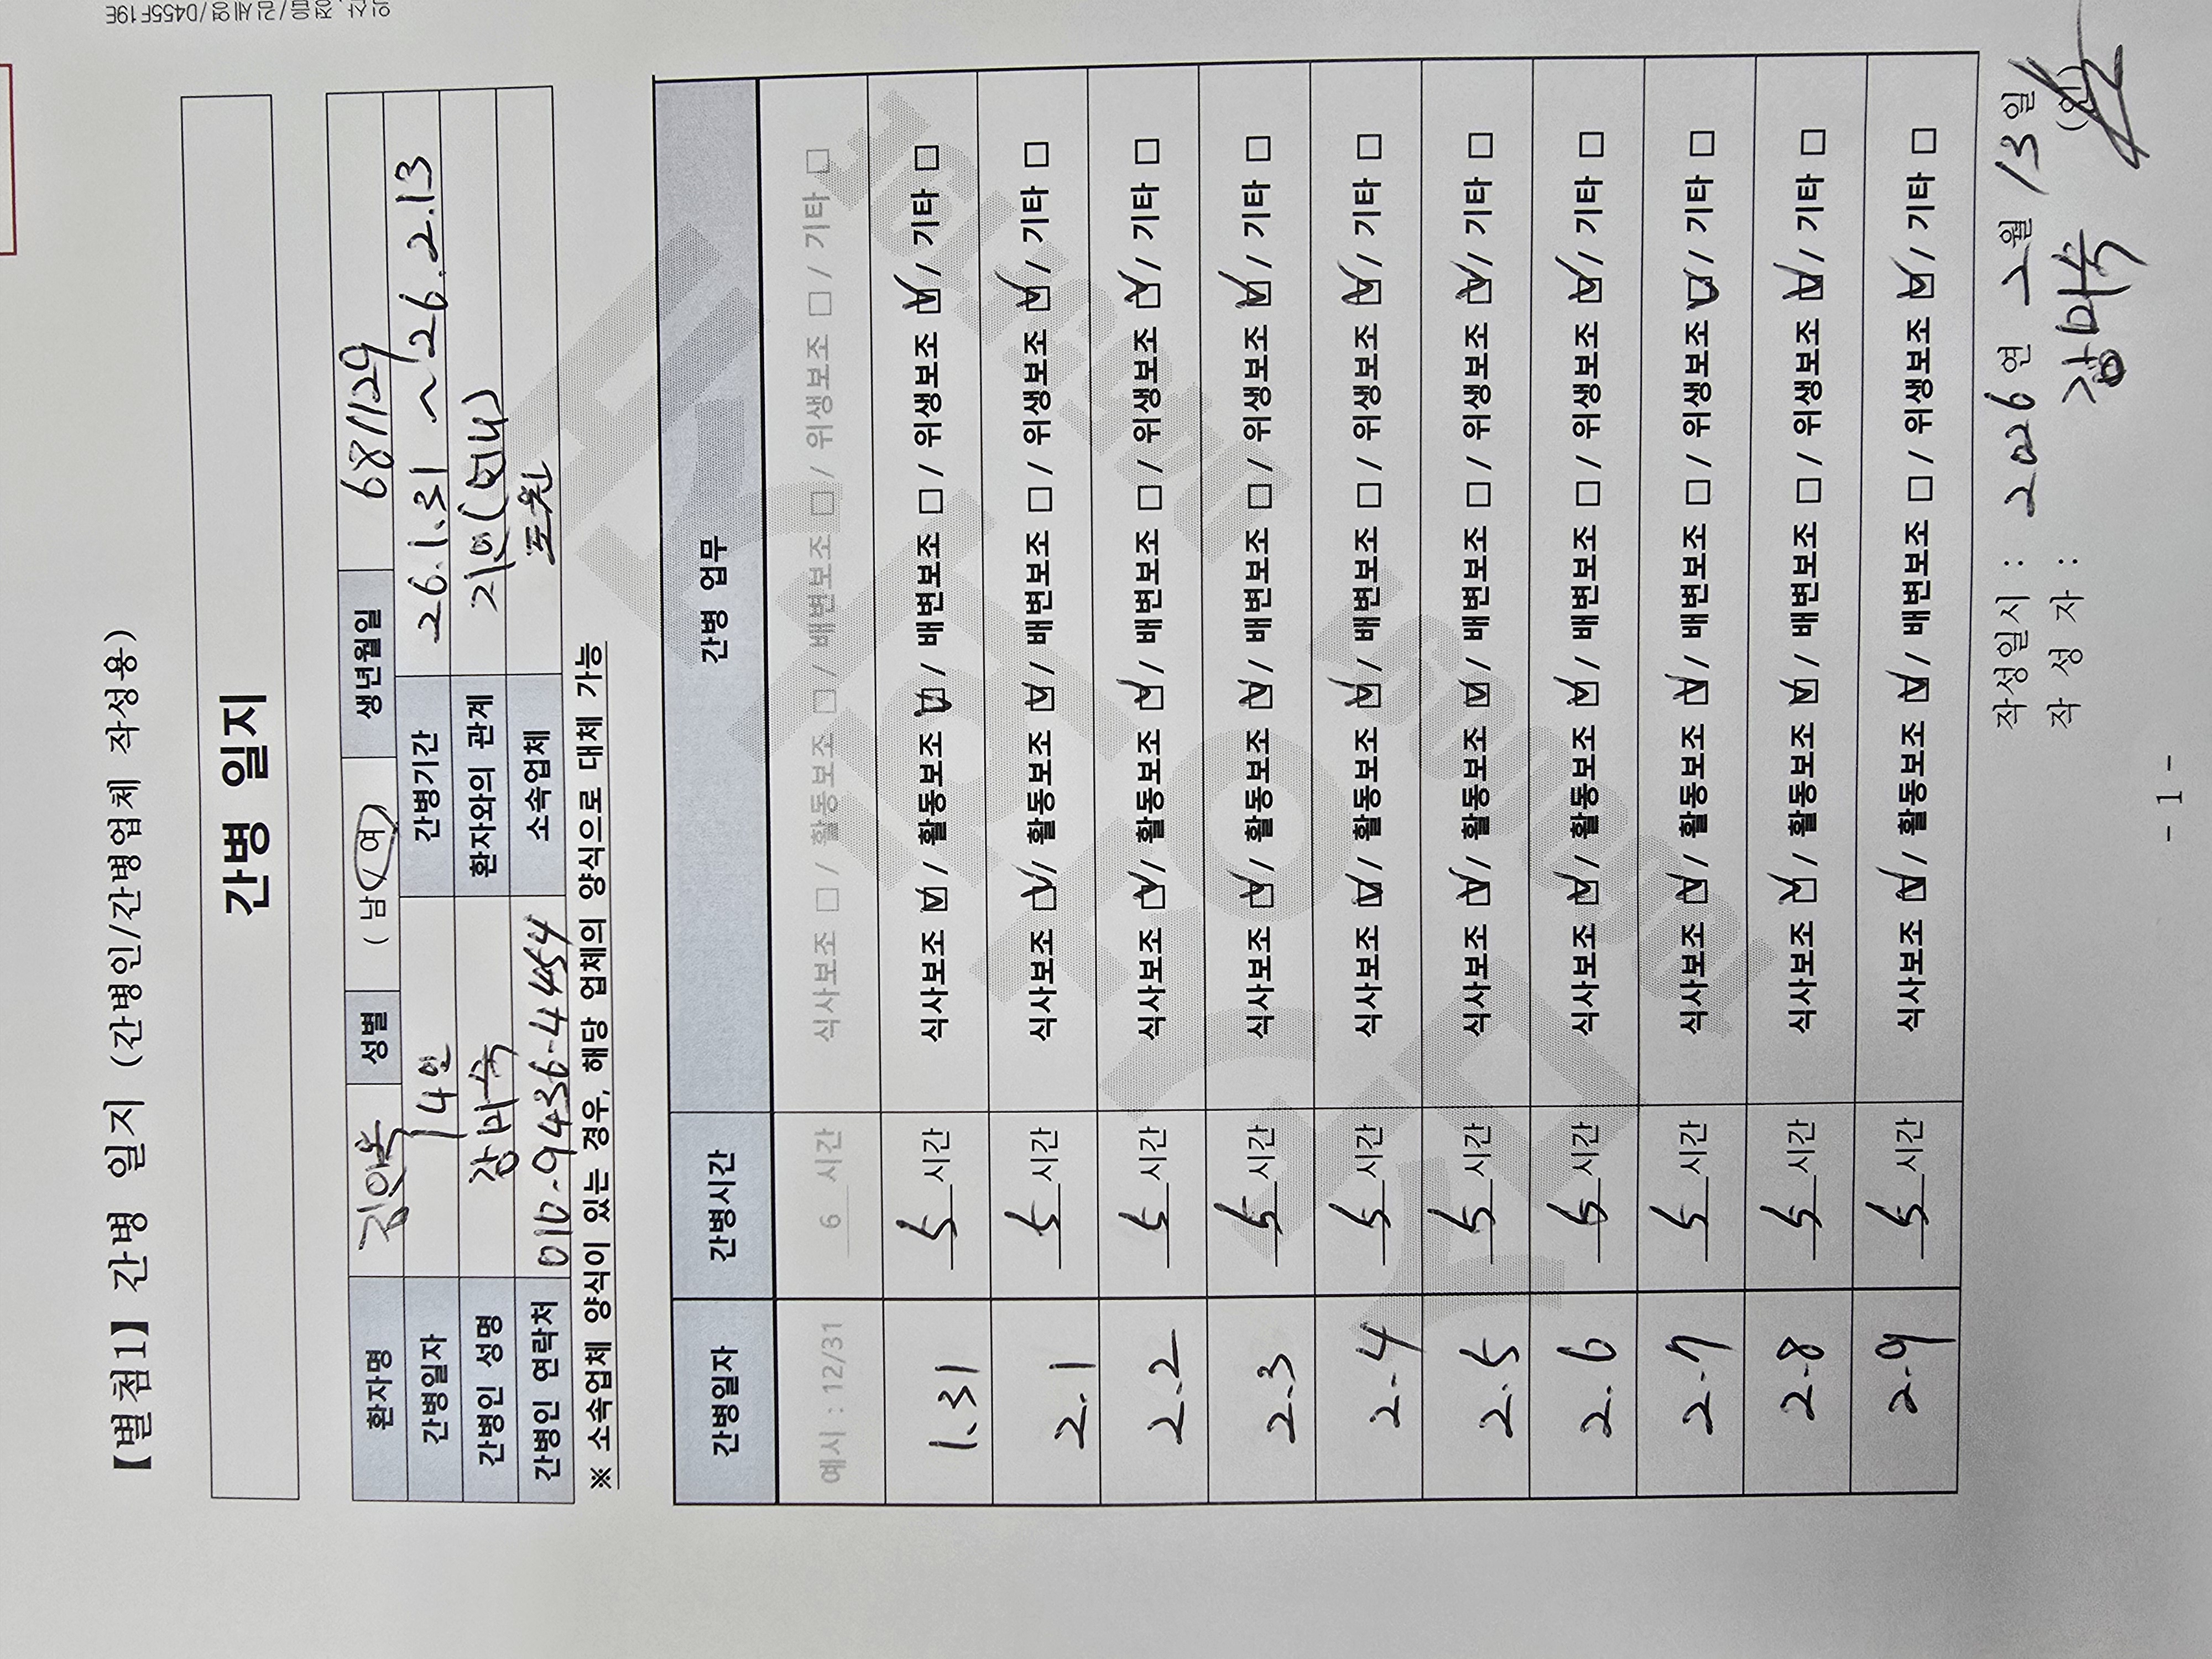 【별첨1】 간병 일지 (간병인/간병업체 작성용)
간병 일지
환자명 성별 ( 남 / 여 생년월일 681129
간병일자 14일 간병기간 26.1.31 ~ '26.2.13
간병인 성명 강미숙 환자와의 관계 지인
간병인 연락처 010-9436-4454 소속업체
※ 소속업체 양식이 있는 경우, 해당 업체의 양식으로 대체 가능
간병일자 간병시간 간병 업무
예시 : 12/31 6 시간 식사보조 □ / 활동보조 □ / 배변보조 □ / 위생보조 □ / 기타 □
1.31 5 시간 식사보조 ☑ / 활동보조 ☑ / 배변보조 □ / 위생보조 ☑ / 기타 □
2.1 5 시간 식사보조 ☑ / 활동보조 ☑ / 배변보조 □ / 위생보조 ☑ / 기타 □
2.2 5 시간 식사보조 ☑ / 활동보조 ☑ / 배변보조 □ / 위생보조 ☑ / 기타 □
2.3 5 시간 식사보조 ☑ / 활동보조 ☑ / 배변보조 □ / 위생보조 ☑ / 기타 □
2-4 5 시간 식사보조 ☑ / 활동보조 ☑ / 배변보조 □ / 위생보조 ☑ / 기타 □
2.5 5 시간 식사보조 ☑ / 활동보조 ☑ / 배변보조 □ / 위생보조 ☑ / 기타 □
2.6 5 시간 식사보조 ☑ / 활동보조 ☑ / 배변보조 □ / 위생보조 ☑ / 기타 □
2-7 5 시간 식사보조 ☑ / 활동보조 ☑ / 배변보조 □ / 위생보조 ☑ / 기타 □
2-8 5 시간 식사보조 ☑ / 활동보조 ☑ / 배변보조 □ / 위생보조 ☑ / 기타 □
2-9 5 시간 식사보조 ☑ / 활동보조 ☑ / 배변보조 □ / 위생보조 ☑ / 기타 □
작성일시 : 2026 연 2월 13일
작 성 자 : 강미숙 (인)
- 1 -